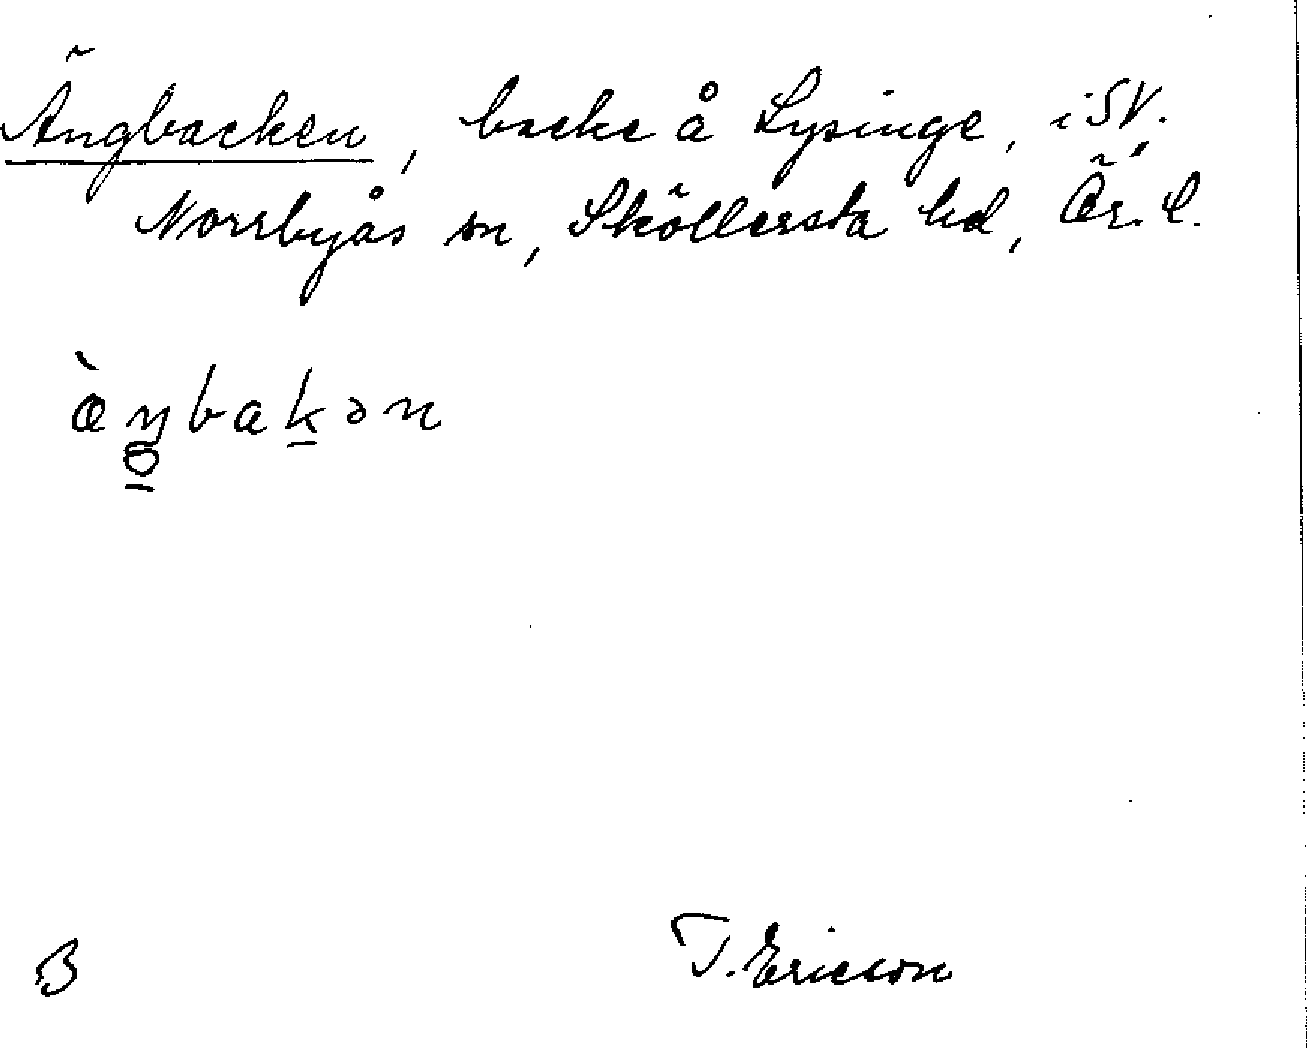 Ängbacken, backe å Lysinge, i SV.
Norrbyås sn, Sköllersta hd, Ör. l.
æ̀ŋbakən
B
T. Ericson